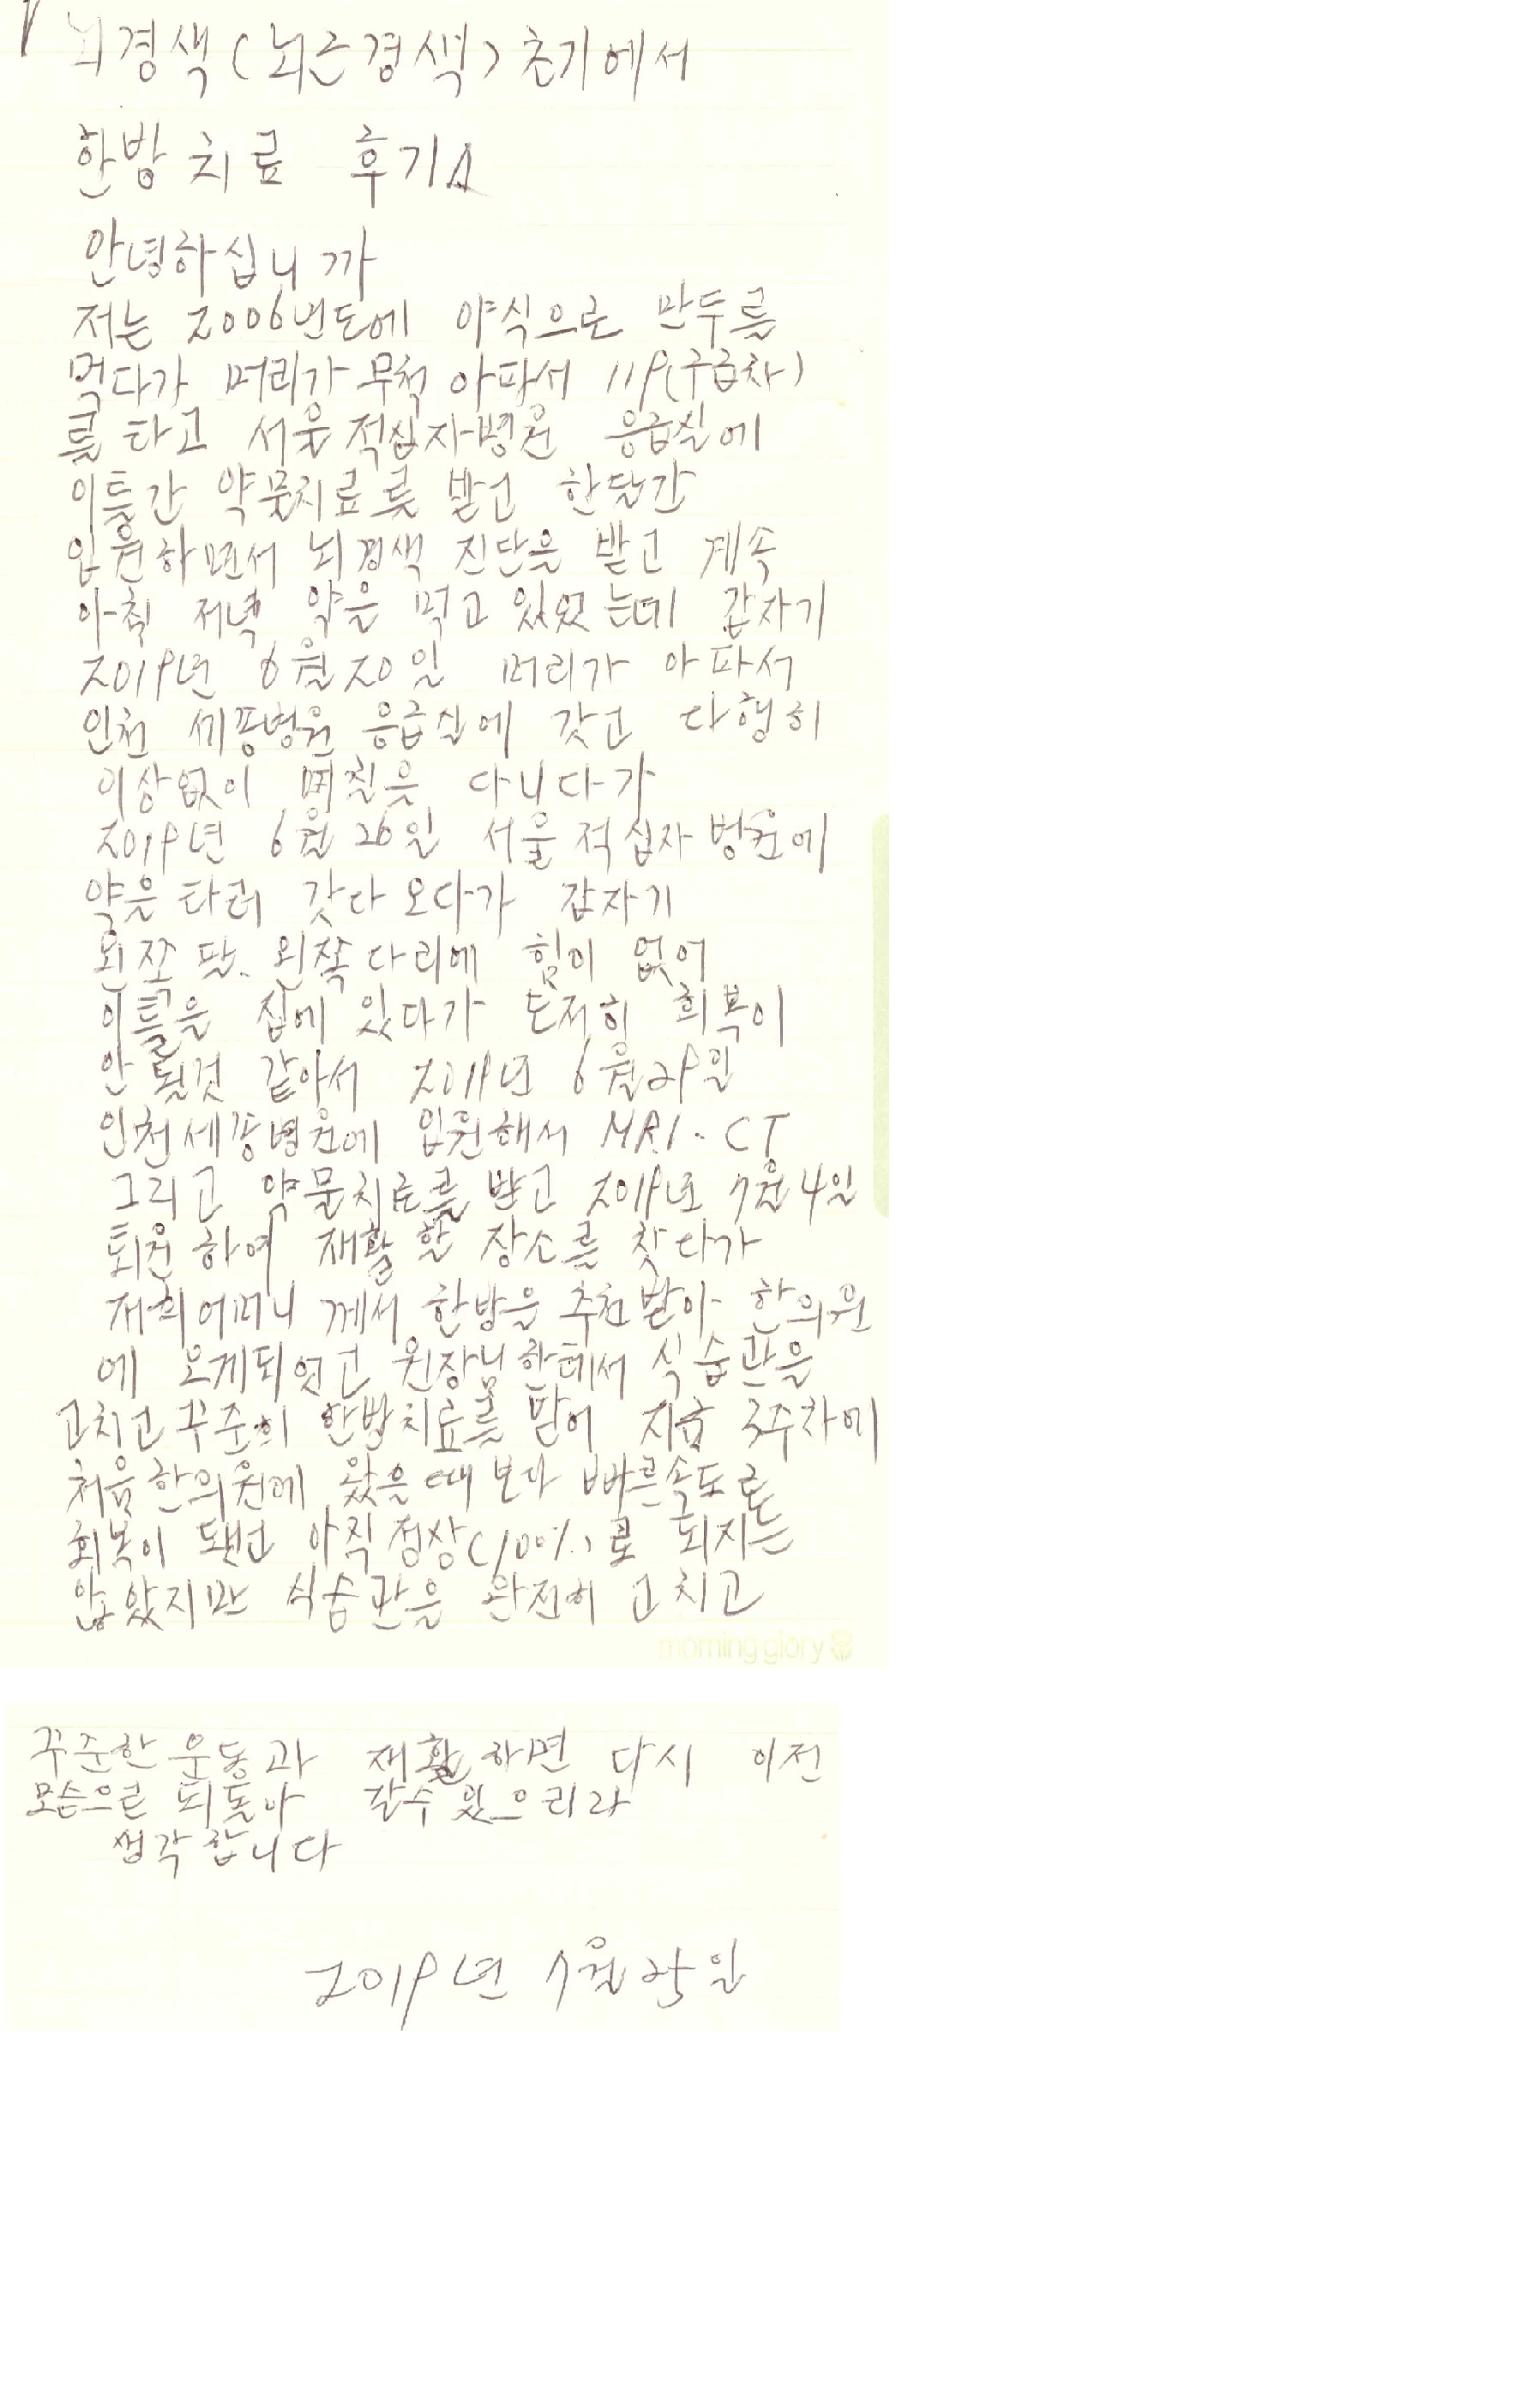 뇌경색(뇌근경색) 초기에서
한방치료 후기
안녕하십니까
저는 2006년도에 야식으로 만두를
먹다가 머리가 무척 아파서 119(구급차)
를 타고 서울적십자병원 응급실에
이틀간 약물치료를 받고 한달간
입원하면서 뇌경색 진단을 받고 계속
아침 저녁 약을 먹고 있었는데 갑자기
2019년 6월 20일 머리가 아파서
인천 세종병원 응급실에 갓고 다행히
이상없이 몇칠을 다니다가
2019년 6월 26일 서울적십자병원에
약을 타러 갓다 오다가 갑자기
왼쪽 팔. 왼쪽다리에 힘이 없어
이틀을 집에 있다가 도저히 회복이
안 될것 같아서 2019년 6월 29일
인천세종병원에 입원해서 MRI. CT
그리고 약물치료를 받고 2019년 7월 4일
퇴원하여 재활할 장소를 찾다가
저희어머니 께서 한방을 추천받아 한의원
에 오게되었고 원장님한테서 식습관을
고치고 꾸준히 한방치료를 받어 지금 3주차에
처음 한의원에 왔을때 보다 빠른속도로
회복이 됐고 아직 정상(100%)로 되지는
않았지만 식습관을 완전히 고치고
morning glory
꾸준한 운동과 재활하면 다시 이전
모습으로 되돌아 갈수 있으리라
생각합니다
2019년 7월 25일